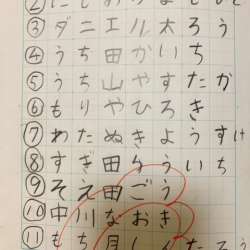 ③ダニエル太ろう
④うち田かいち
⑤うち山やすたか
⑥もりやひろき
⑦わたぬきようすけ
⑧すぎ田りういち
⑨そえ田ごう
⑩中川なおき
⑪もち月し